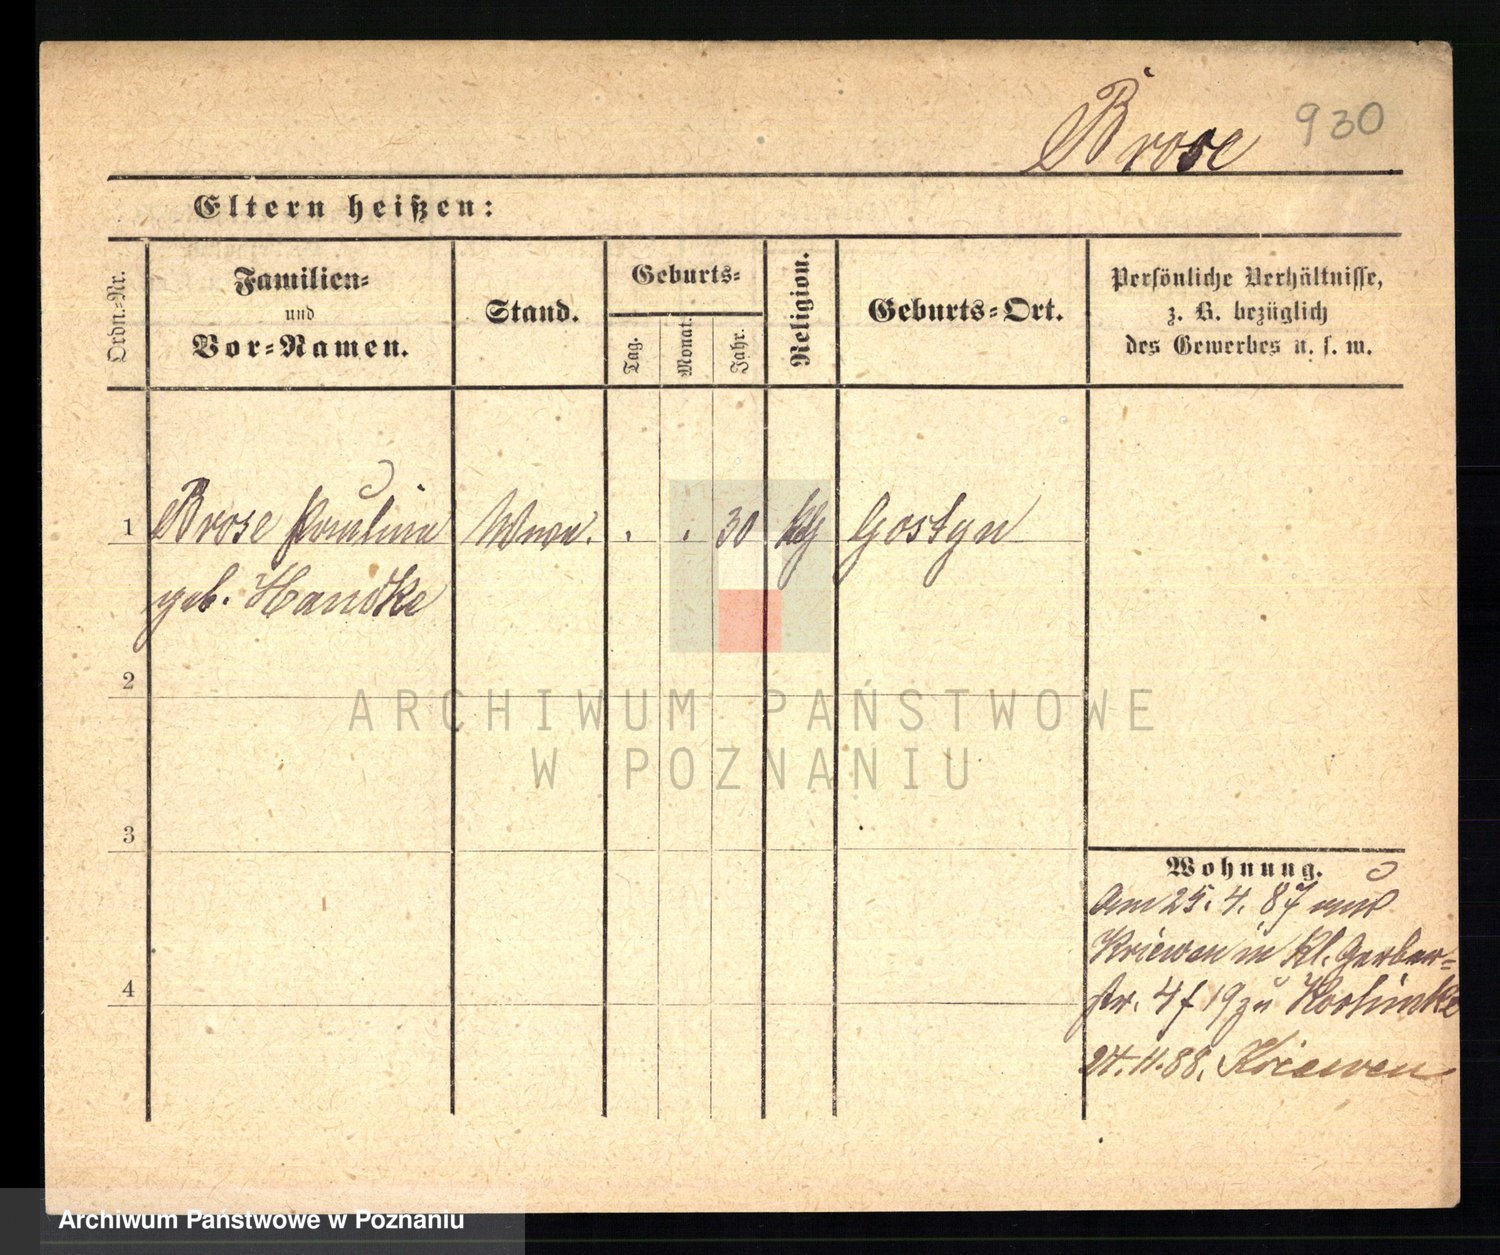 Brose 930
Eltern heißen:
Ordn.-Nr.
Familien-
und
Vor-Namen.
Stand.
Geburts-
Tag.
Monat.
Jahr.
Religion.
Geburts-Ort.
Persönliche Verhältnisse,
z. B. bezüglich
des Gewerbes u. s. w.
1 Brose Pauline Wwe. . . 30 Gostyn
geb. Handke
2
3
4
Wohnung.
Am 25. 4. 87 aus
Kriewen in Kl. Gerber-
str. 4 f 19 zu
24. 11. 88. Kriewen
ARCHIWUM PAŃSTWOWE
W POZNANIU
Archiwum Państwowe w Poznaniu